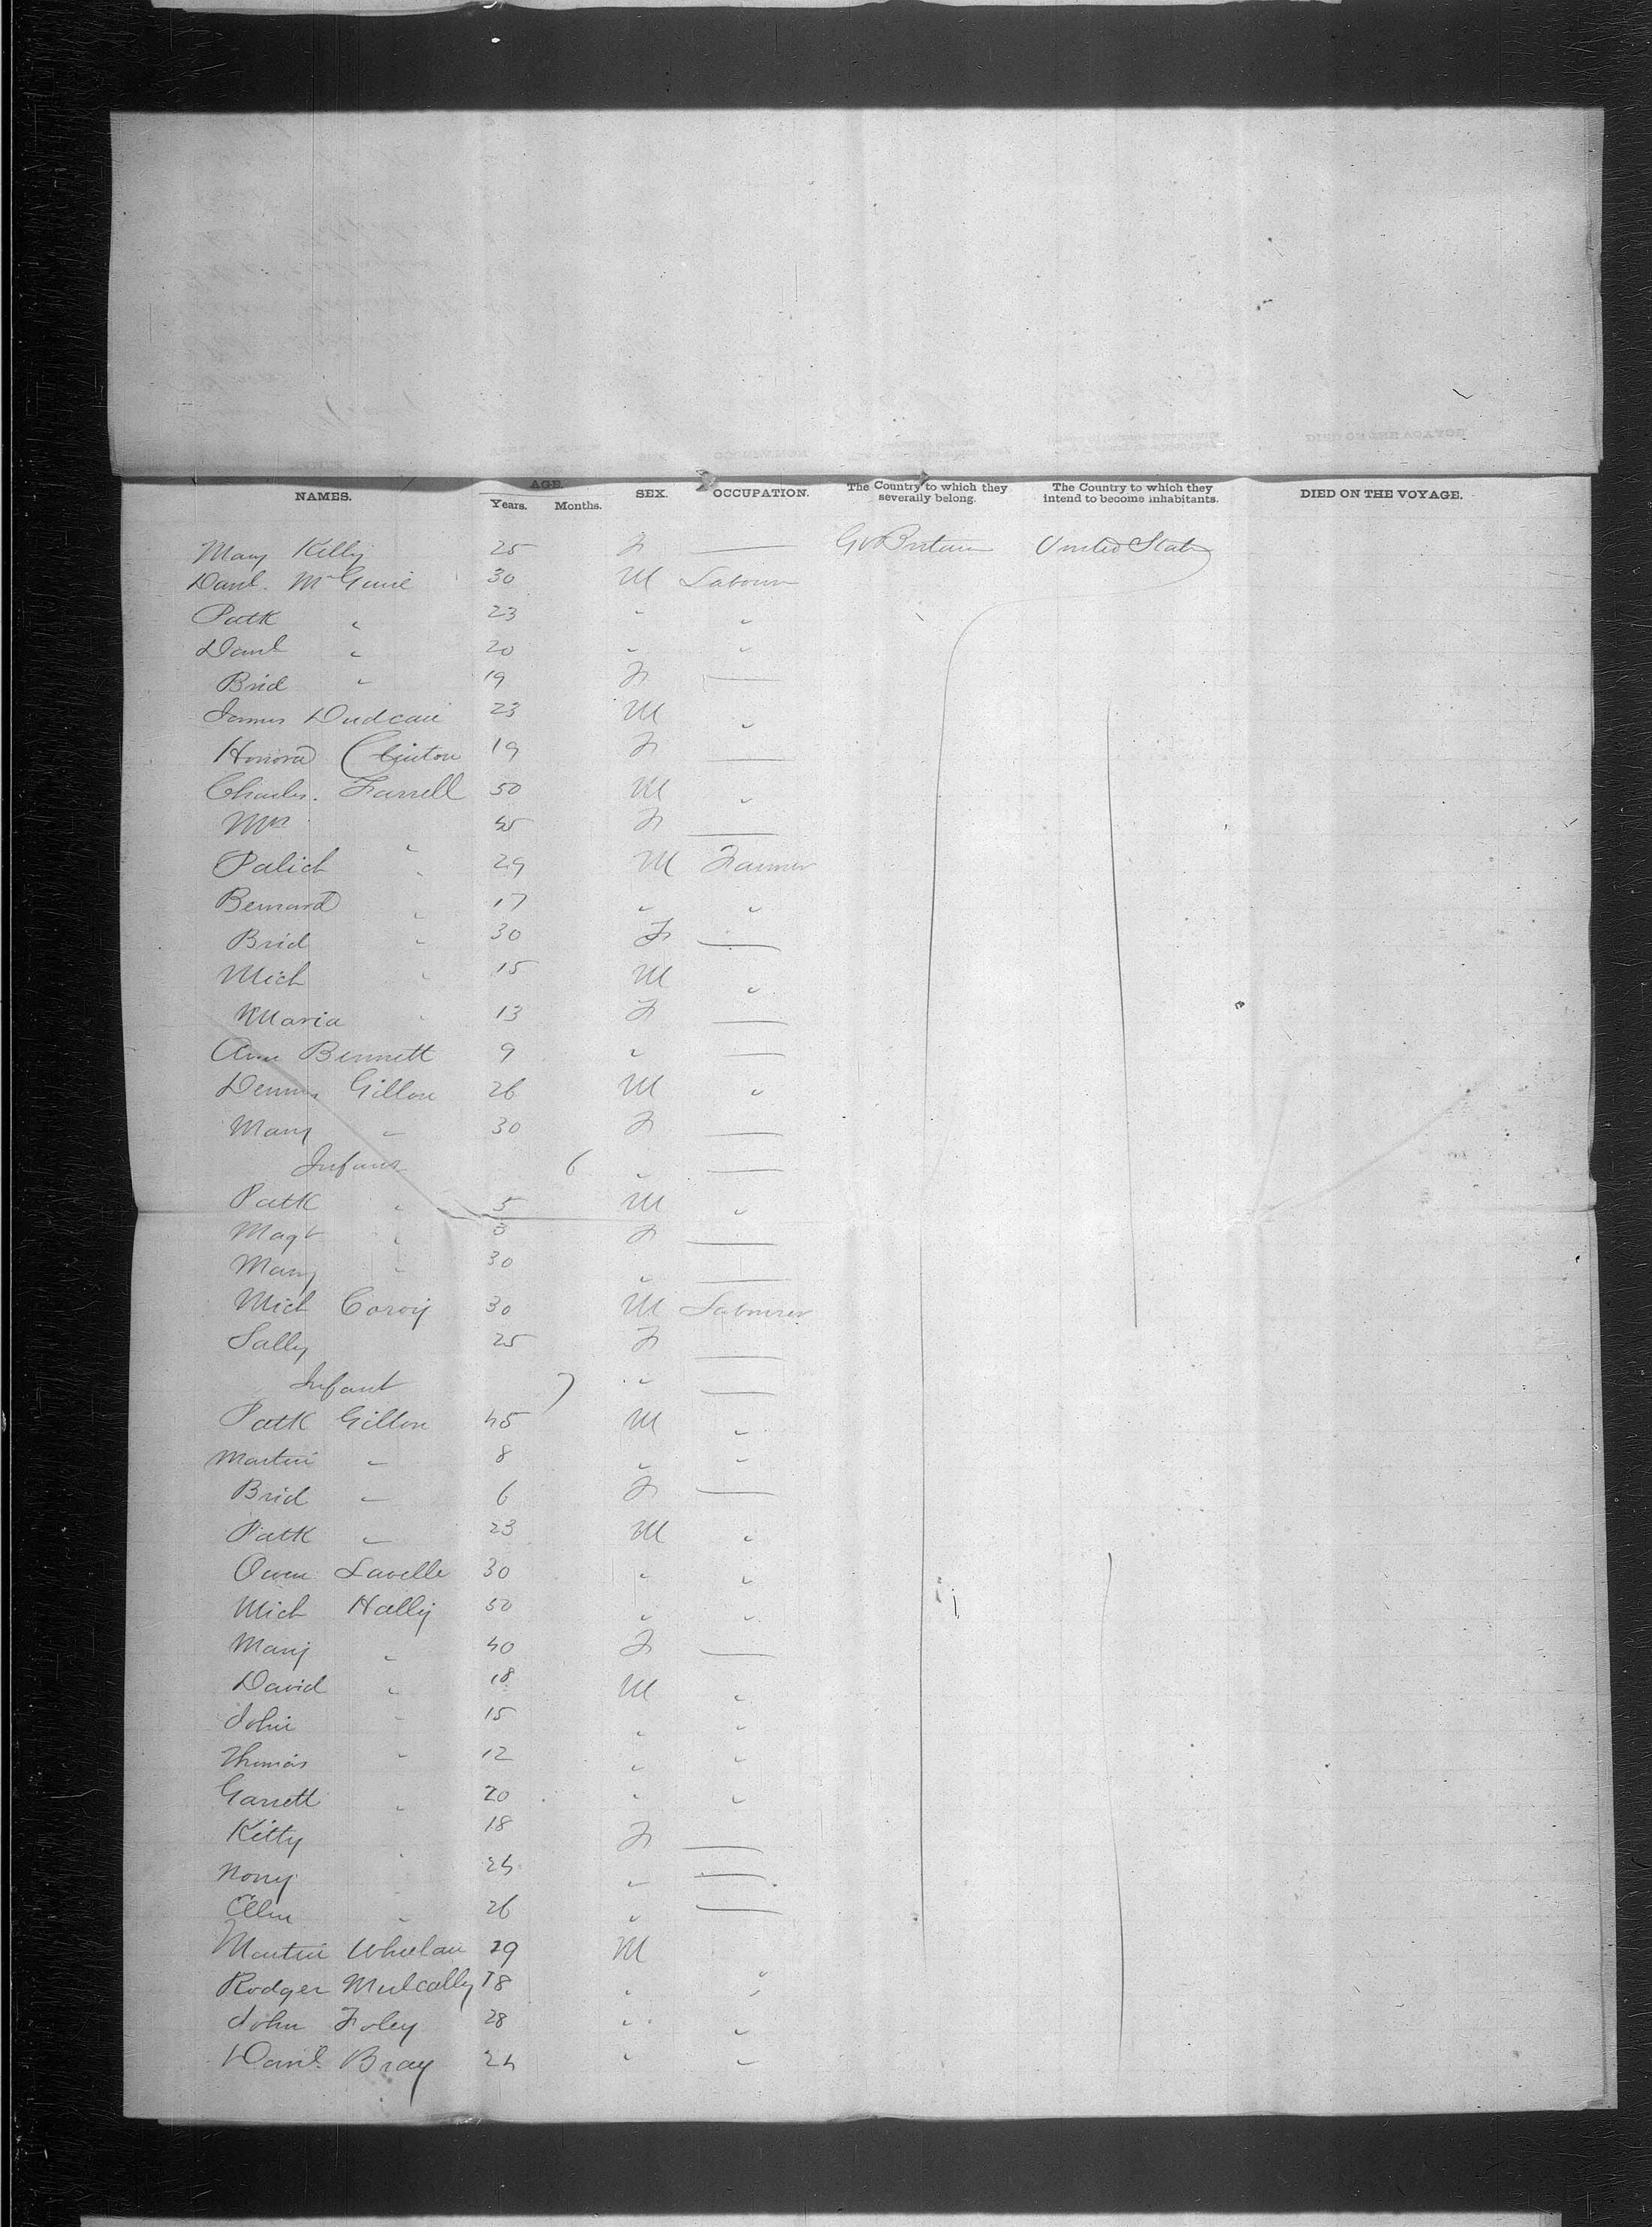 NAMES. AGE. SEX. OCCUPATION. The Country to which they severally belong. The Country to which they intend to become inhabitants. DIED ON THE VOYAGE.
Years. Months.
Mary Killy 25 F — Gt Britain United States
Danl. McGuire 30 M Labour
Patk " 23 " "
Danl " 20 " "
Brid " 19 F —
James 23 M "
Honora Clinton 19 F —
Charles. Farrell 50 M "
Mrs " 45 F —
Patick " 29 M Farmer
Bernard " 17 " "
Brid " 30 F —
Mich " 15 M "
Maria " 13 F —
Ann Bennett 9 " —
Dennis Gillon 26 M "
Mary " 30 F —
Infant 6 " —
Patk " 5 M "
Magt " 3 F —
Mary " 30 " —
Mich 30 M Labourer
Sally 25 F —
Infant 7 " —
Patk Gillon 45 M "
Martin " 8 " "
Brid " 6 F —
Patk " 23 M "
Owen Lavelle 30 " "
Mich Hally 50 " "
Mary " 40 F —
David " 18 M "
John " 15 " "
Thomas " 12 " "
Garrett " 20 " "
Kitty " 18 F —
Nony 24 " —
Ellen " 26 " —
Martin Whelan 29 M "
Rodger Mulcally 18 " "
John Foley 28 " "
Danl. Bray 24 " "